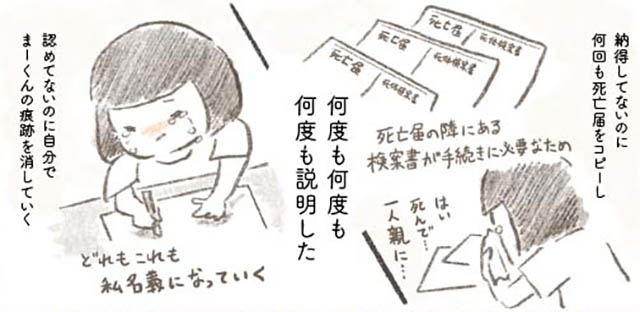 納得してないのに
何回も死亡届をコピーし
死亡届
死体検案書
死亡届
死体検案書
死亡届
死体検案書
死亡届の隣にある
検案書が手続きに必要なため
はい
死んで…
一人親に…
何度も何度も
何度も説明した
認めてないのに自分で
まーくんの痕跡を消していく
どれもこれも
私名義になっていく